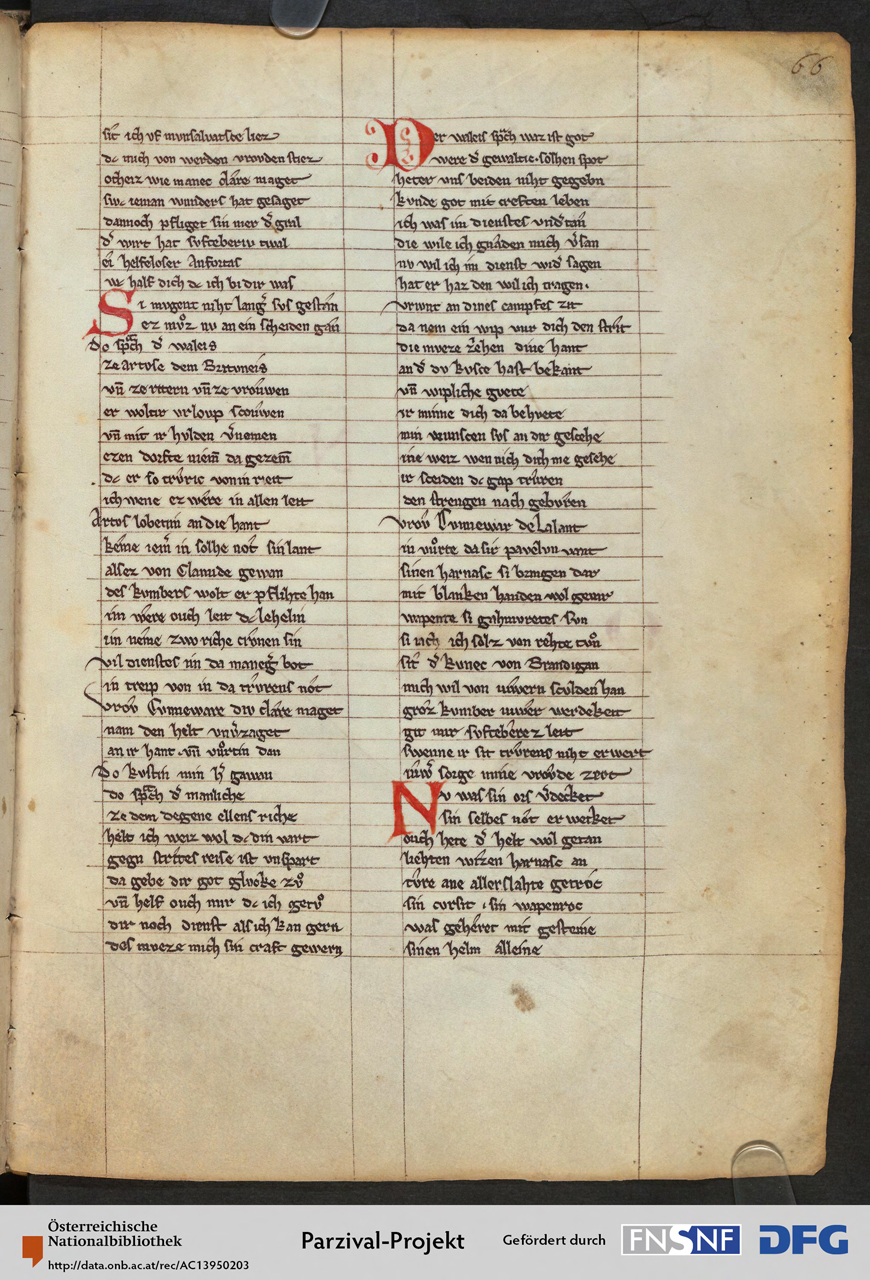 66
sit ich vf mvnsalvatsce liez
dc mich von werden vrovden stiez
ocheiz wie manec clare maget
swc ieman wunders hat gesaget
dannoch pfliget sin mer d͛ gral
d͛ wirt hat svfteberiv twal
ei helfeloser Anfortas
wc half dich dc ich bi dir was
Si mvgent niht lang͛ svs gestan
ez mvͦz nv an ein scheiden gan
Do spͣch d͛ waleis
ze artvse dem Brituneis
vn̄ ze rittern vn̄ ze vrouwen
er wolte vrloup scouwen
vn̄ mit ir hvlden v͛nemen
ezen dorfte niem̄ da gezem̄
dc er so trvric von in reit
ich wene ez were in allen leit
Artvs lobetim an die hant
keme iem͛ in solhe not sin lant
als ez von Clamide gewan
des kvmbers wolt er pflihte han
im were ouch leit dc lehelin
im neme zwo riche cronen sin
vil dienstes im da maneg͛ bot
in treip von in da trvrens not
vrov Cvnneware div clare maget
nam den helt vnv͛zaget
an ir hant vn̄ vvͦrtin dan
Do kvstin min h͛ gawan
do spͣch d͛ manliche
ze dem degene ellens riche
helt ich weiz wol dc din vart
gegn strites reise ist vnspart
da gebe dir got glvcke zvͦ
vn̄ helf ouch mir dc ich getvͦ
dir noch dienst als ich kan gern
des mveze mich sin craft gewern
Der waleis spͣch waz ist got
were d͛ gewaltic · solhen spot
heter vns beiden niht gegebn
kvnde got mit creften leben
ich was im dienstes vnd͛tan
die wile ich gnaden mich v͛san
nv wil ich im dienst wid͛ sagen
hat er haz den wil ich tragen ·
vrivnt an dines campfes zit
da nem ein wip vur dich den strit
die mveze ziehen dine hant
an d͛ dv kvsce hast bekant
vn̄ wipliche gvete
ir minne dich da behvete
min wunscen svs an dir gescehe
ine weiz wen nich dich me gesehe
ir sceiden dc gap trvren
den strengen nach gebvren
vrov Cvnnewar de Lalant
in vvͦrte da sir pavelvn vant
sinen harnasc si bringen dar
mit blanken handen wol gevar
wapente si gahmvretes svn
si iach ich solz von rehte tvͦn
sit d͛ kvnec von Brandigan
mich wil von iuwern scvlden han
groz kvmber iuwer werdekeit
git mir svftebere z leit
swenne ir sit trvrens niht erwert
iuw͛ sorge mine vrovde zert
Nv was sin ors v͛decket
sin selbes not erwecket
ouch hete d͛ helt wol getan
liehten wizen harnasc an
tvre ane allerslahte getroc
sin cvrsit · sin wapenroc
was geheret mit gesteine
sinen helm alleine
Österreichische
Nationalbibliothek
http://data.onb.ac.at/rec/AC13950203
Parzival-Projekt
Gefördert durch
FNSNF
DFG